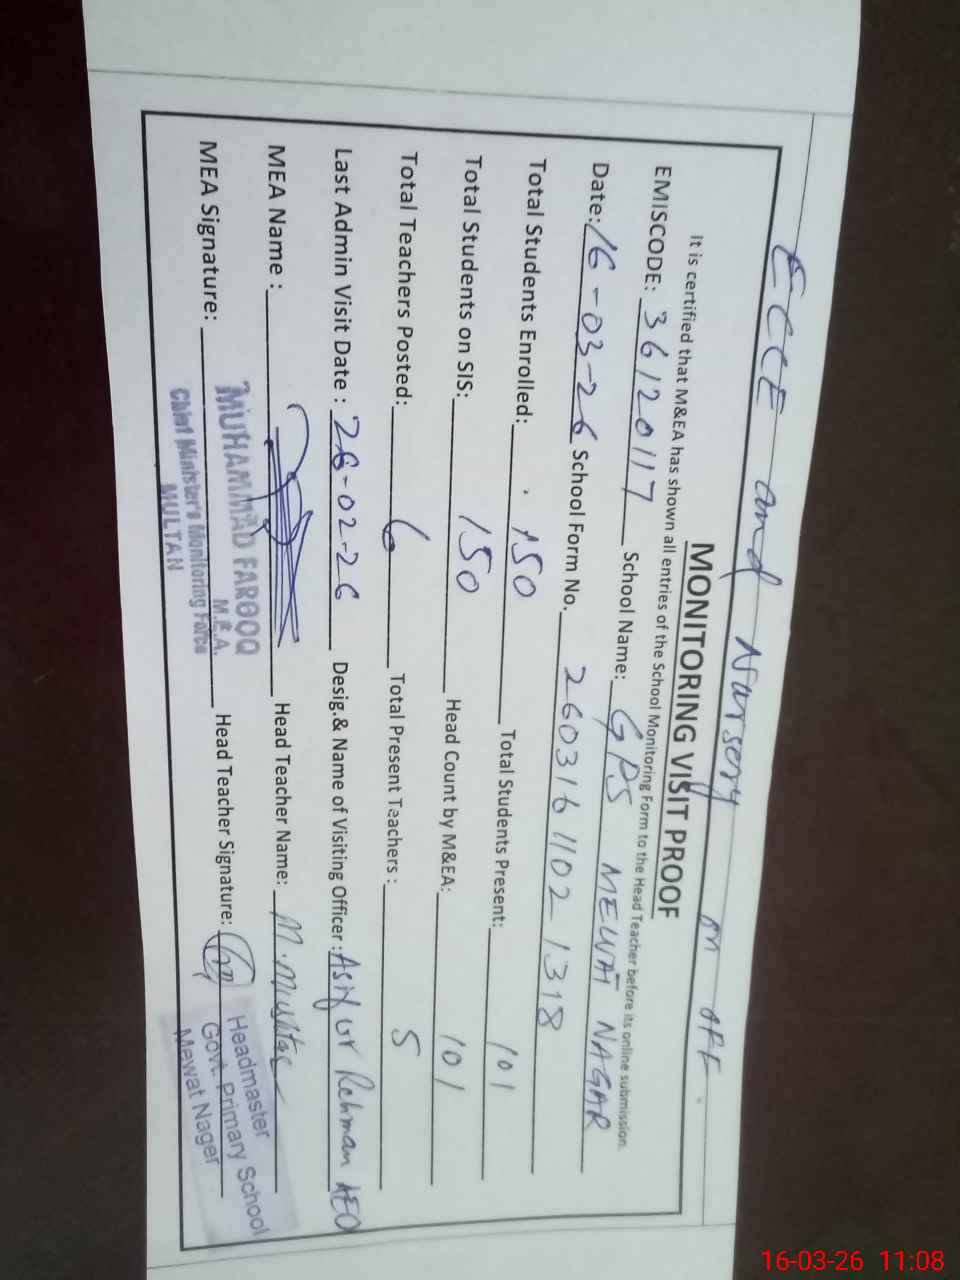 ECCE and Nursery on OFF.
MONITORING VISIT PROOF
It is certified that M&EA has shown all entries of the School Monitoring Form to the Head Teacher before its online submission.
EMISCODE: 36120117 School Name: GPS MEWAT NAGAR
Date: 16-03-26 School Form No. 2603161102 1318
Total Students Enrolled: 150 Total Students Present: 101
Total Students on SIS: 150 Head Count by M&EA: 101
Total Teachers Posted: 6 Total Present Teachers: 5
Last Admin Visit Date: 26-02-26 Desig.& Name of Visiting Officer: Asif ur Rehman AEO
MEA Name: Head Teacher Name: M. Mushtaq
MEA Signature: Head Teacher Signature:
MUHAMMAD FAROOQ
M.E.A.
Chief Minister's Monitoring Force
MULTAN
Headmaster
Govt. Primary School
Mewat Nager
16-03-26 11:08